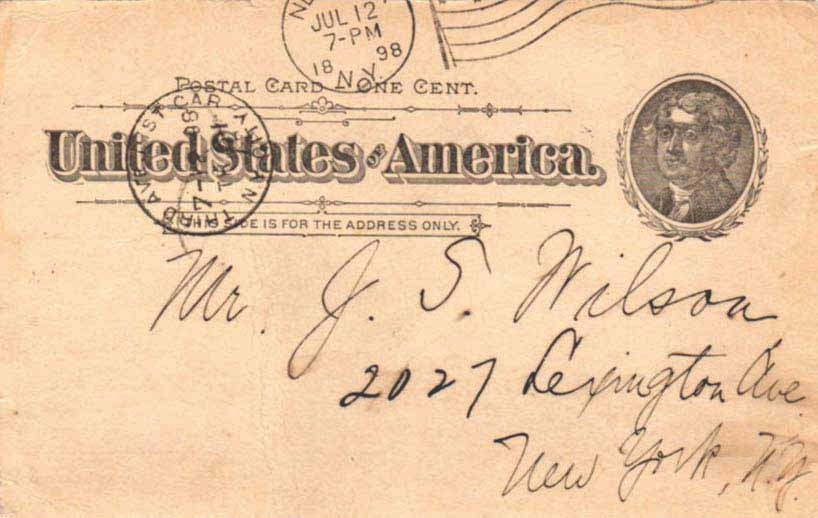 JUL 12
7-PM
18 98
N.Y.
POSTAL CARD ONE CENT.
United States of America.
THIS SIDE IS FOR THE ADDRESS ONLY.
THIRD AVE ST CAR
Mr. J. S. Wilson
2027 Lexington Ave.
New York, N.Y.